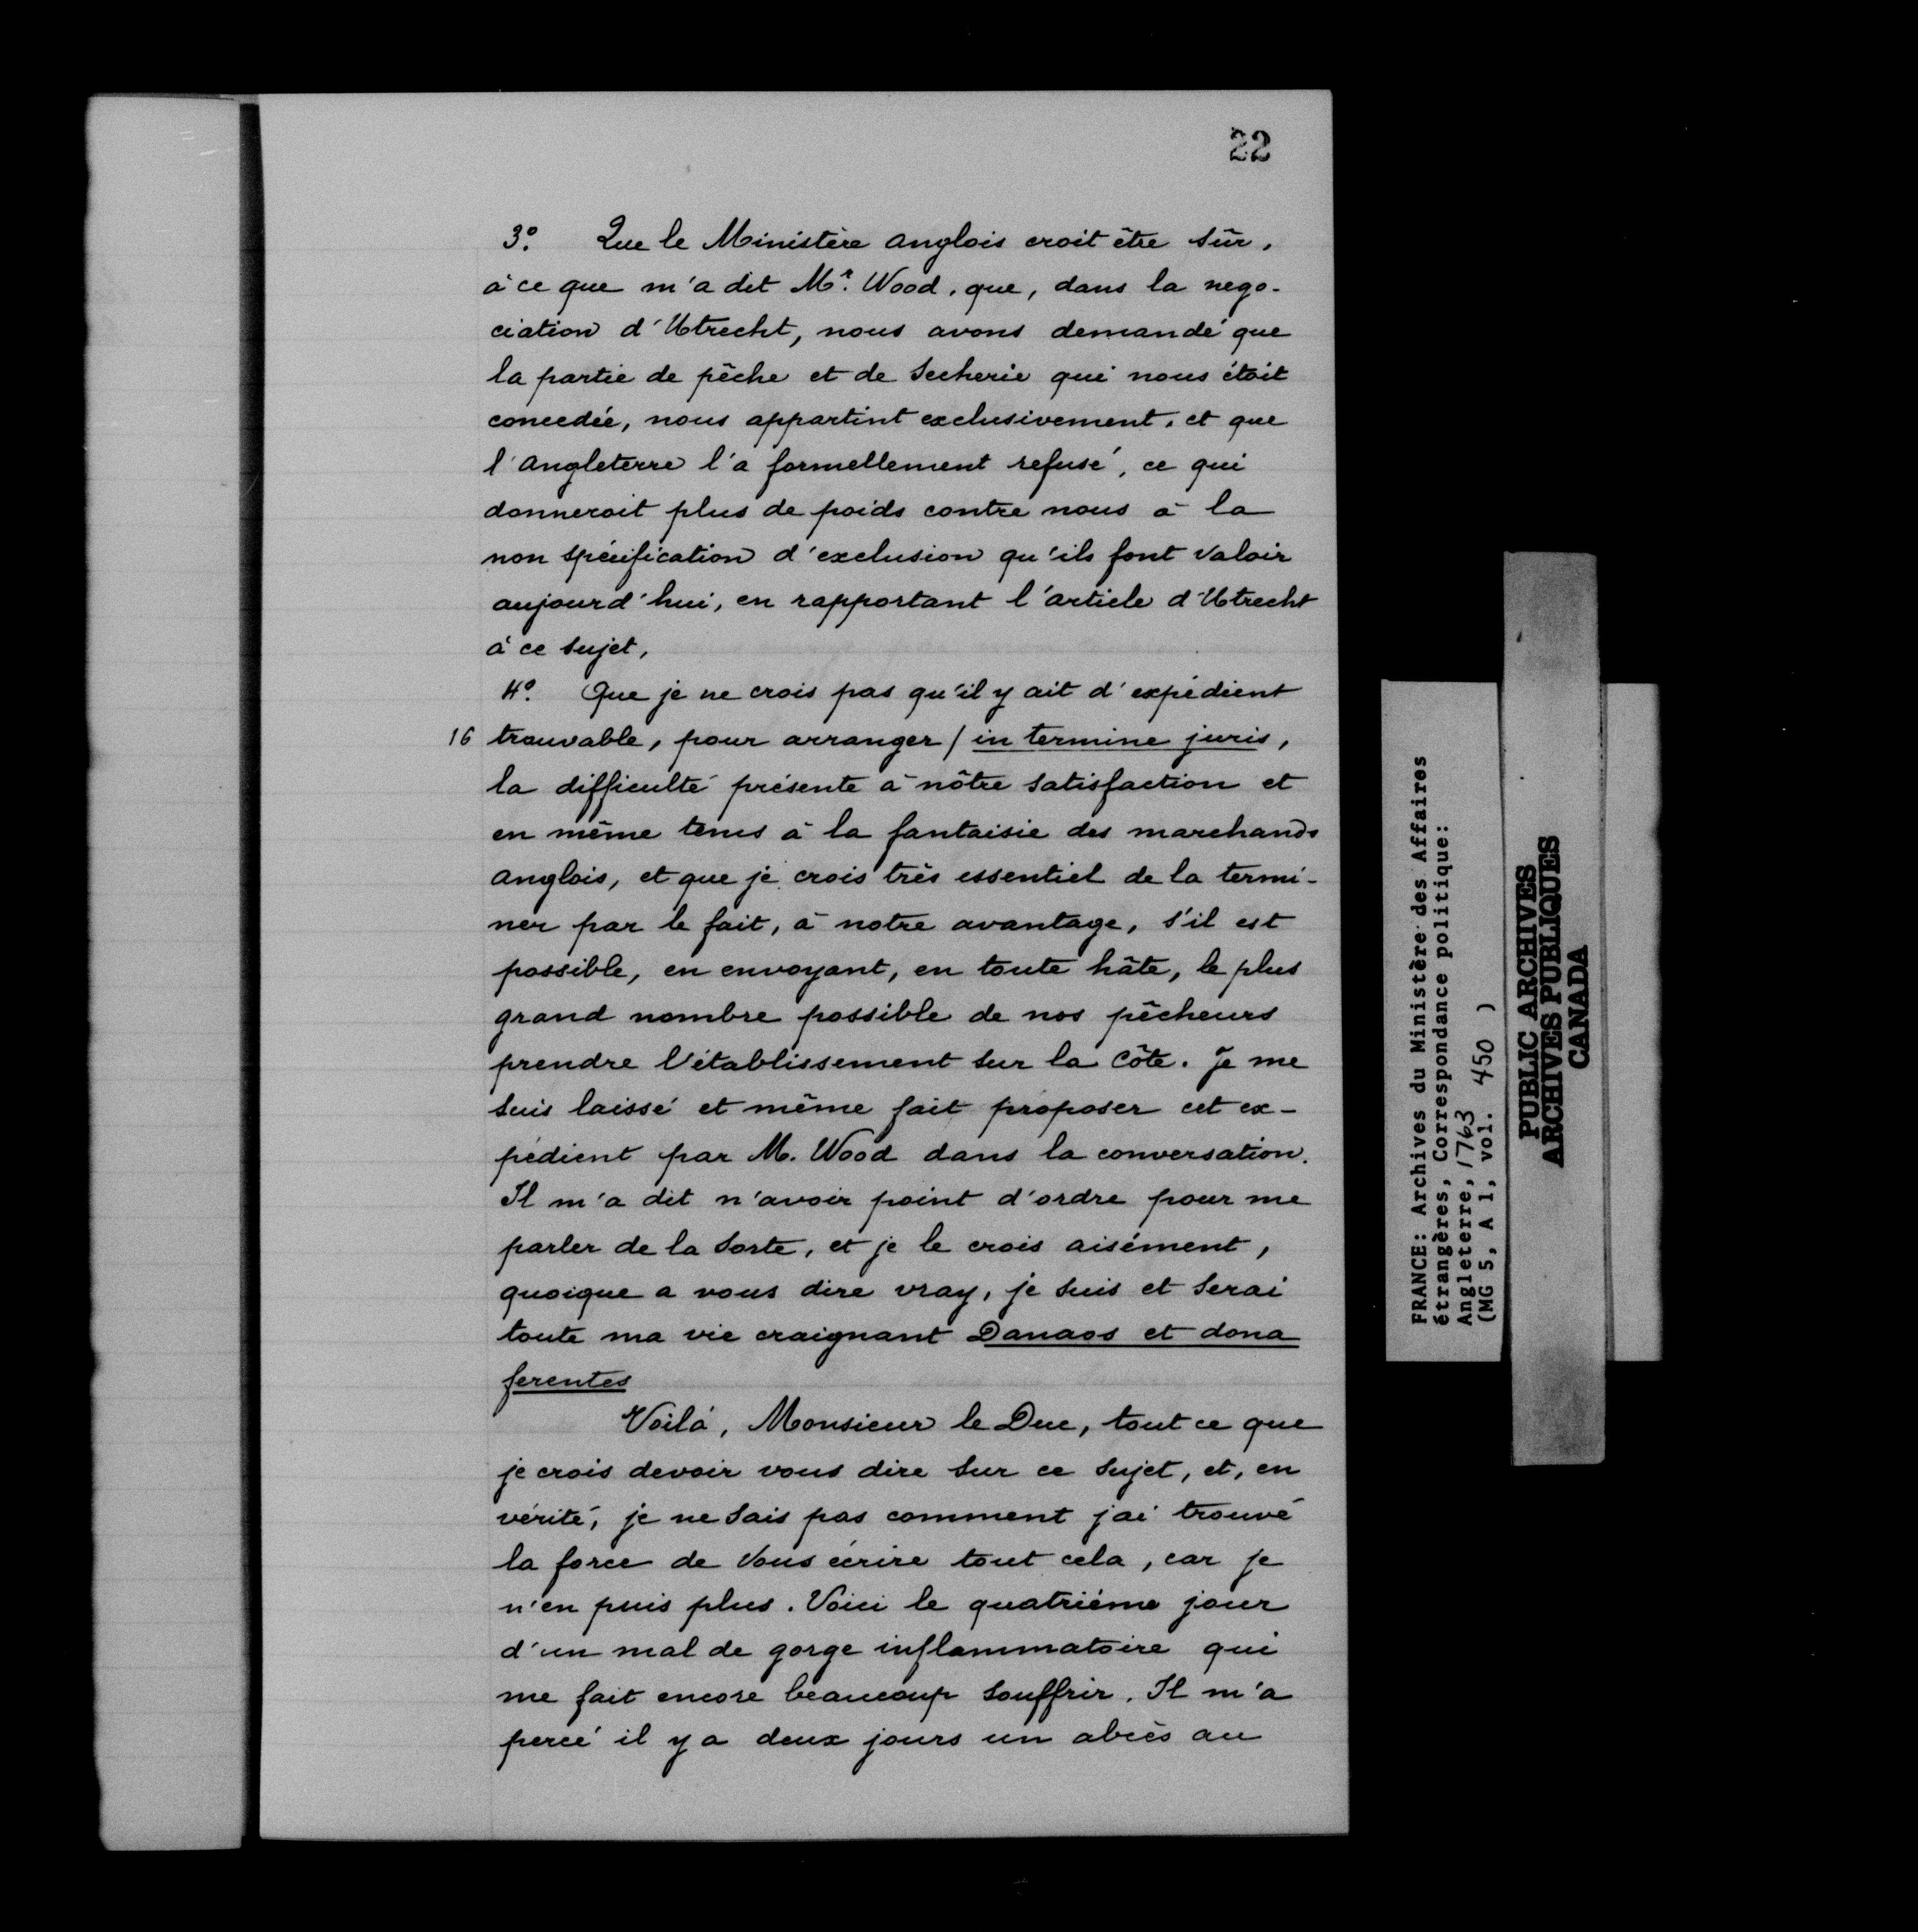 22
3º. Que le Ministère anglois croit être sûr,
à ce que m'a dit Mr. Wood, que, dans la nego-
ciation d'Utrecht, nous avons demandé que
la partie de pêche et de secherie qui nous étoit
concedée, nous appartint exclusivement, et que
l'angleterre l'a formellement refusé, ce qui
donneroit plus de poids contre nous à la
non spécification d'exclusion qu'ils font valoir
aujourd'hui, en rapportant l'article d'Utrecht
à ce sujet,
4º. Que je ne crois pas qu'il y ait d'expédient
16 trouvable, pour arranger / in termine juris,
la difficulté présente à nôtre satisfaction et
en même tems à la fantaisie des marchands
anglois, et que je crois très essentiel de la termi-
ner par le fait, à notre avantage, s'il est
possible, en envoyant, en toute hâte, le plus
grand nombre possible de nos pêcheurs
prendre l'établissement sur la côte. Je me
suis laissé et même fait proposer cet ex-
pédient par M. Wood dans la conversation.
Il m'a dit n'avoir point d'ordre pour me
parler de la sorte, et je le crois aisément,
quoique a vous dire vray, je suis et serai
toute ma vie craignant Danaos et dona
ferentes
Voilà, Monsieur le Duc, tout ce que
je crois devoir vous dire sur ce sujet, et, en
vérité, je ne sais pas comment j'ai trouvé
la force de vous écrire tout cela, car je
n'en puis plus. Voici le quatriéme jour
d'un mal de gorge inflammatoire qui
me fait encore beaucoup souffrir. Il m'a
percé il y a deux jours un abcès au
FRANCE: Archives du Ministère des Affaires
étrangères, Correspondance politique:
Angleterre, 1763
(MG 5, A 1, vol. 450 )
PUBLIC ARCHIVES
ARCHIVES PUBLIQUES
CANADA